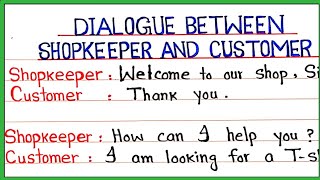 DIALOGUE BETWEEN
SHOPKEEPER AND CUSTOMER
Shopkeeper : Welcome to our shop,
Customer : Thank you.
Shopkeeper : How can I help you ?
Customer : I am looking for a